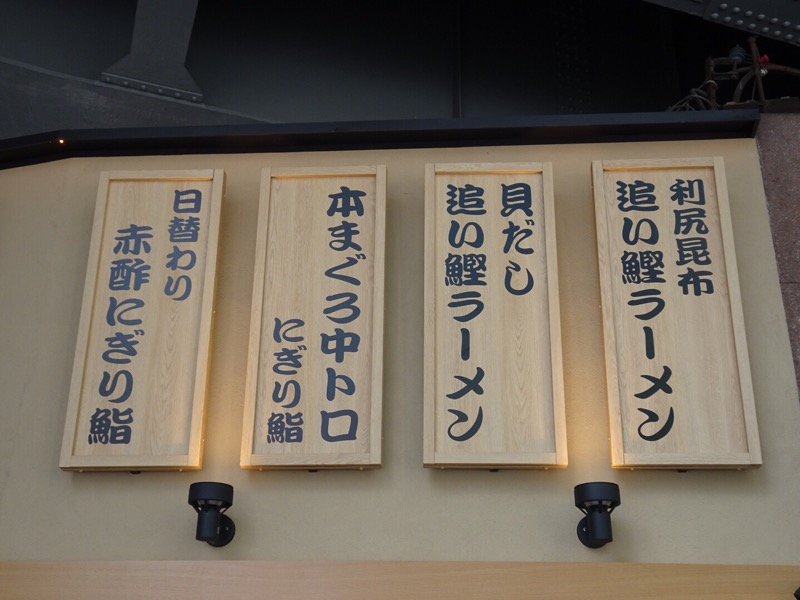 利尻昆布
追い鰹ラーメン
貝だし
追い鰹ラーメン
本まぐろ中トロ
にぎり鮨
日替わり
赤酢にぎり鮨